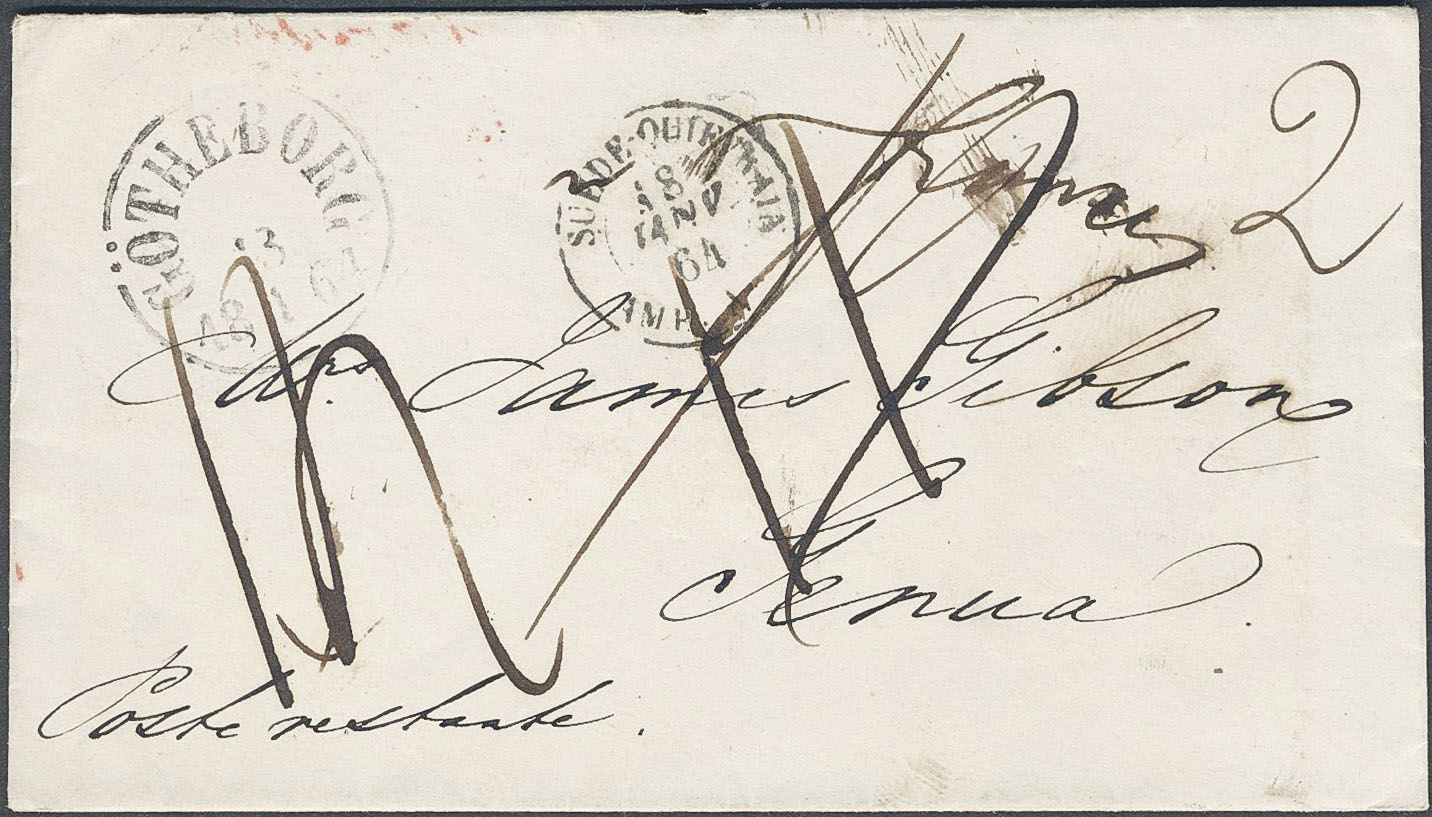 GÖTHEBORG
13
1
64
SUEDE QUIEVRAIN
18
JANV
64
2
Mrs. James Gibson
Genua.
Poste restante.